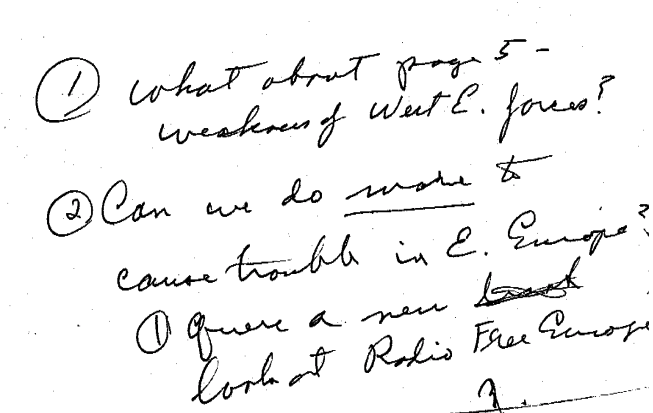 ① What about page 5 -
weakness of West E. forces?
② Can we do more to
cause trouble in E. Europe?
① Quere a new
look at Radio Free Europe
?